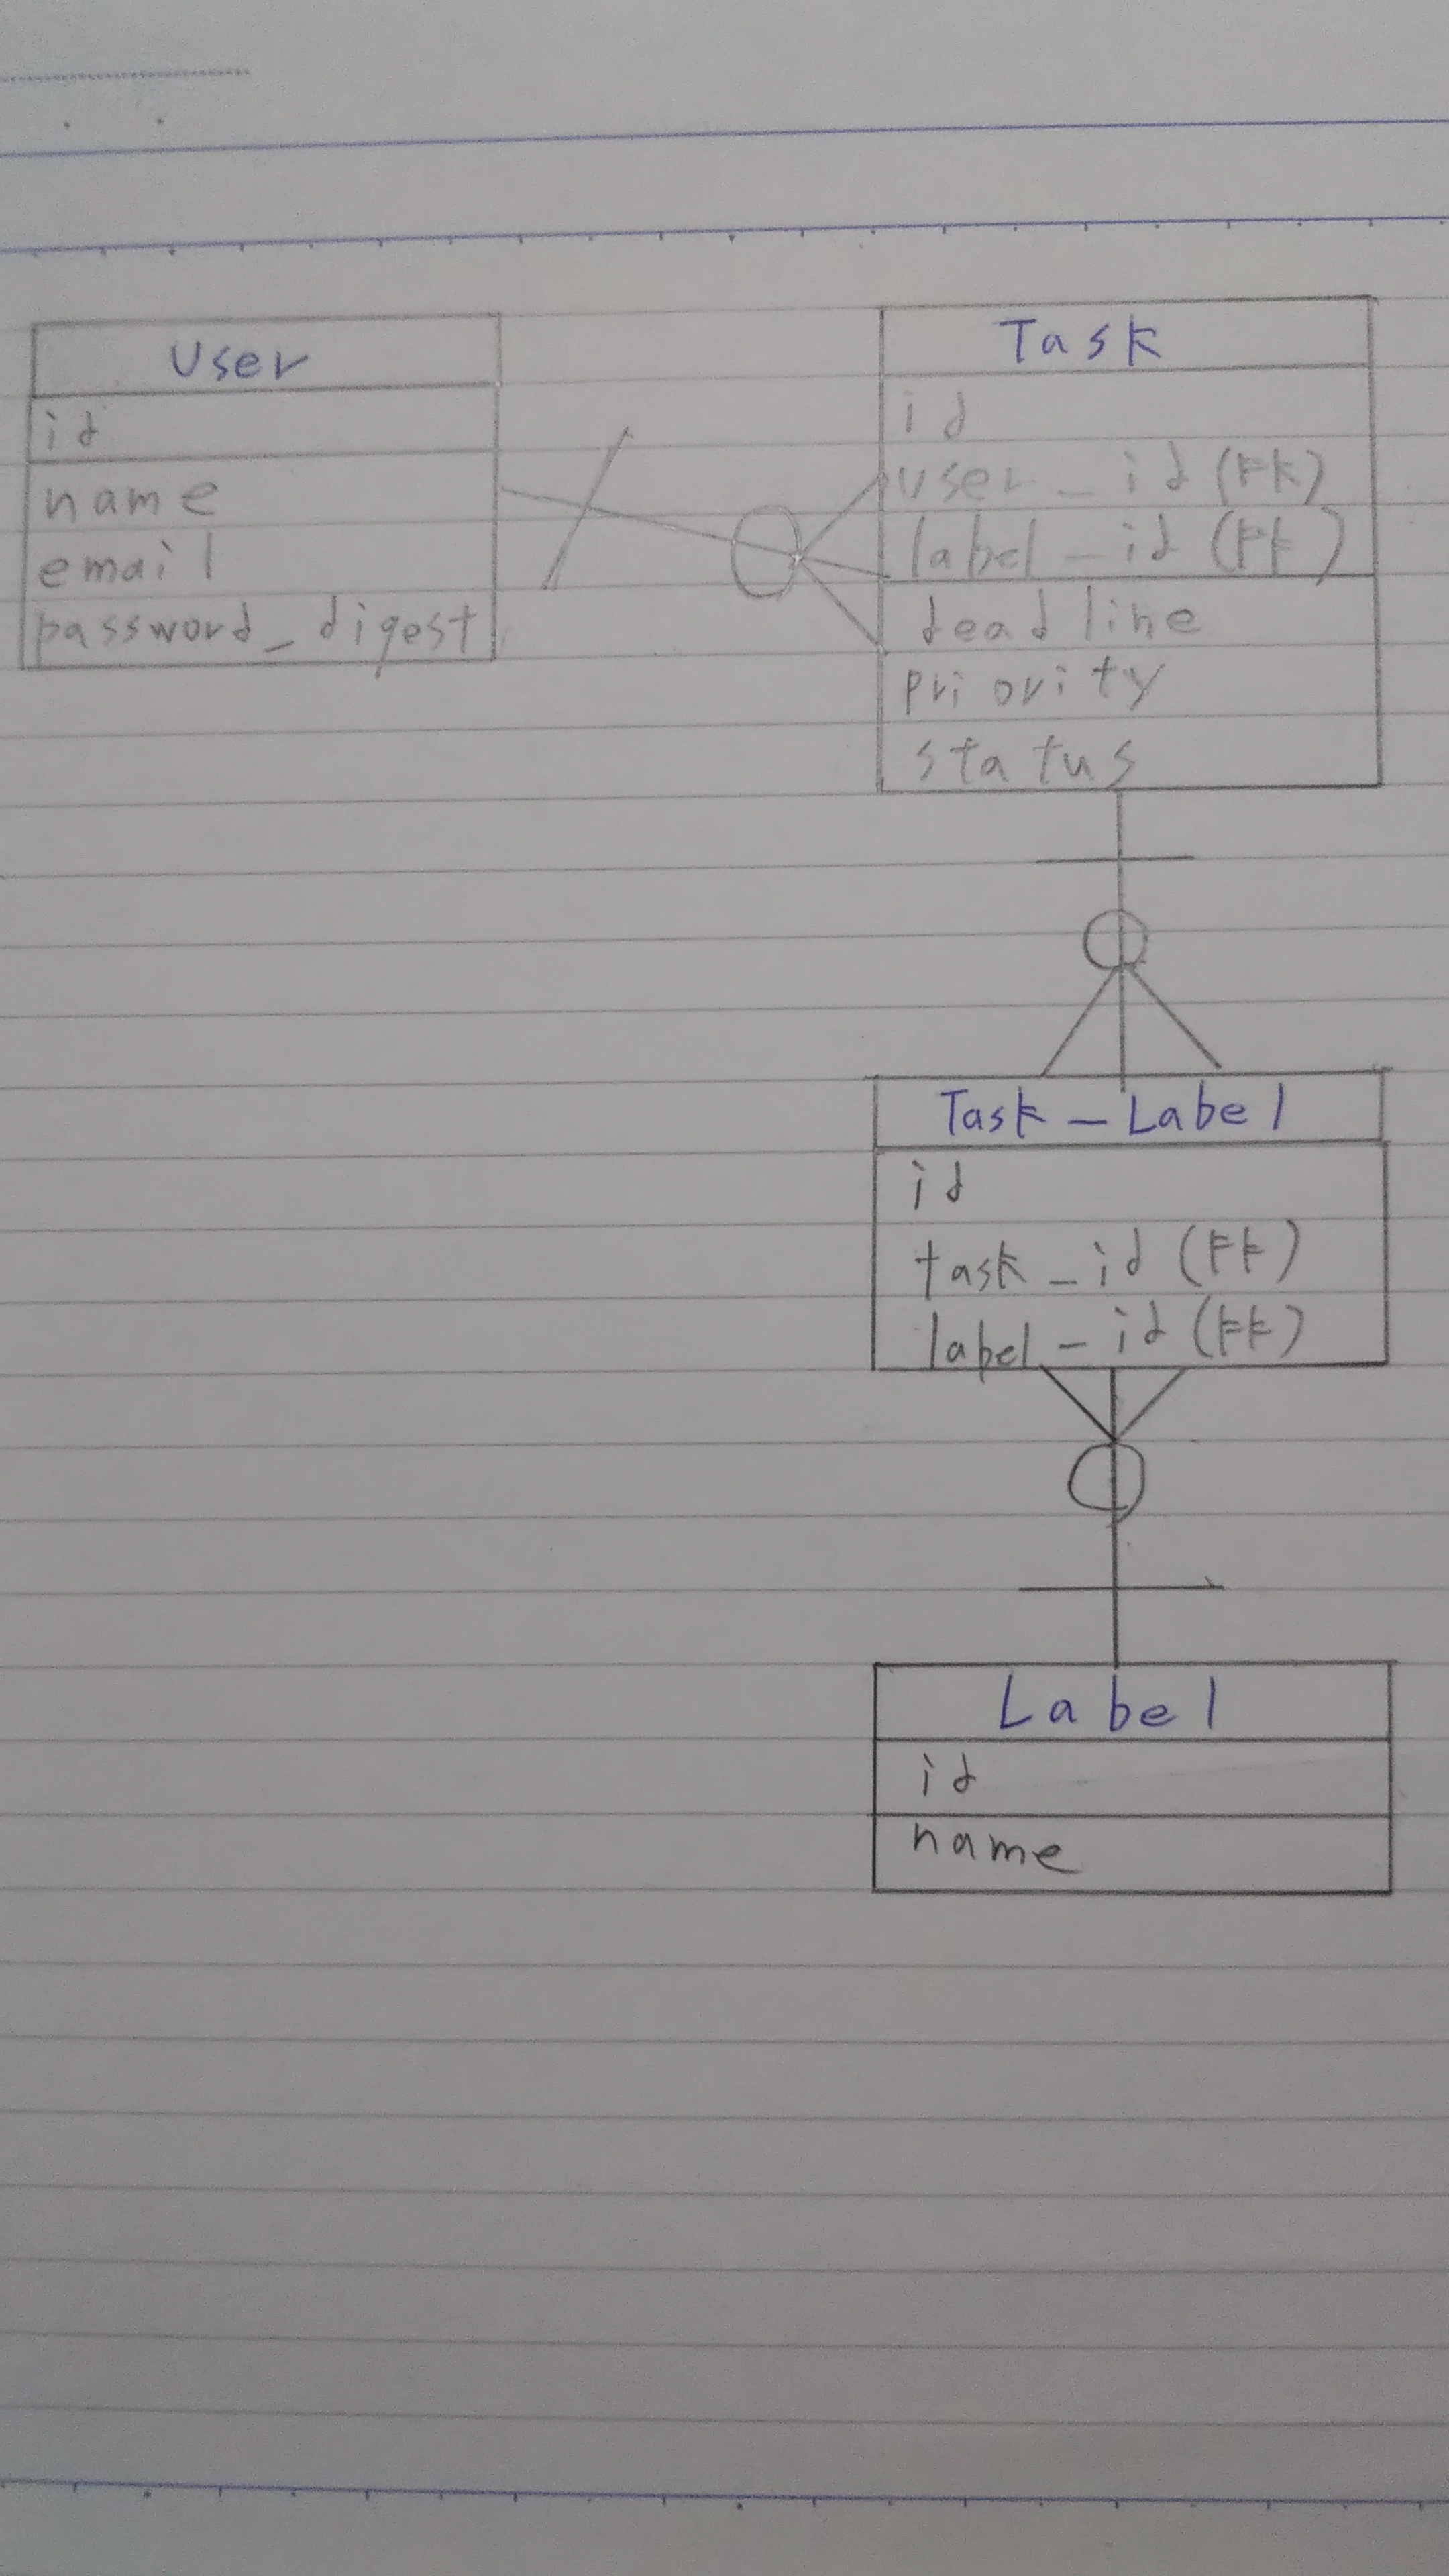 User
id
name
email
password_digest
Task
id
user_id (FK)
label_id (FK)
deadline
priority
status
Task_Label
id
task_id (FK)
label_id (FK)
Label
id
name